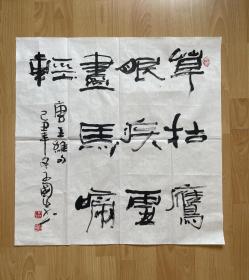 草枯鷹
眼疾雪
盡馬蹄
輕
唐王維句
己丑年